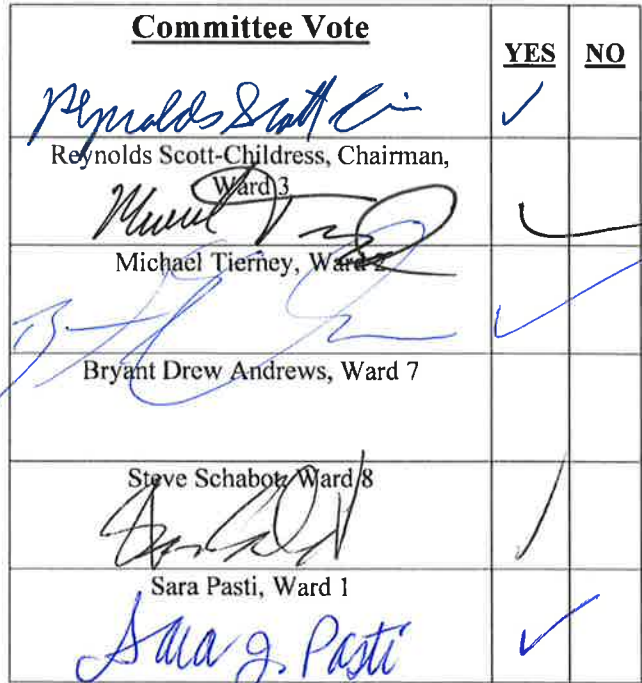 Committee Vote
YES NO
Reynolds Scott
Reynolds Scott-Childress, Chairman,
Ward 3
Michael Tierney, Ward 2
Bryant Drew Andrews, Ward 7
Steve Schabot, Ward 8
Sara Pasti, Ward 1
Sara J. Pasti